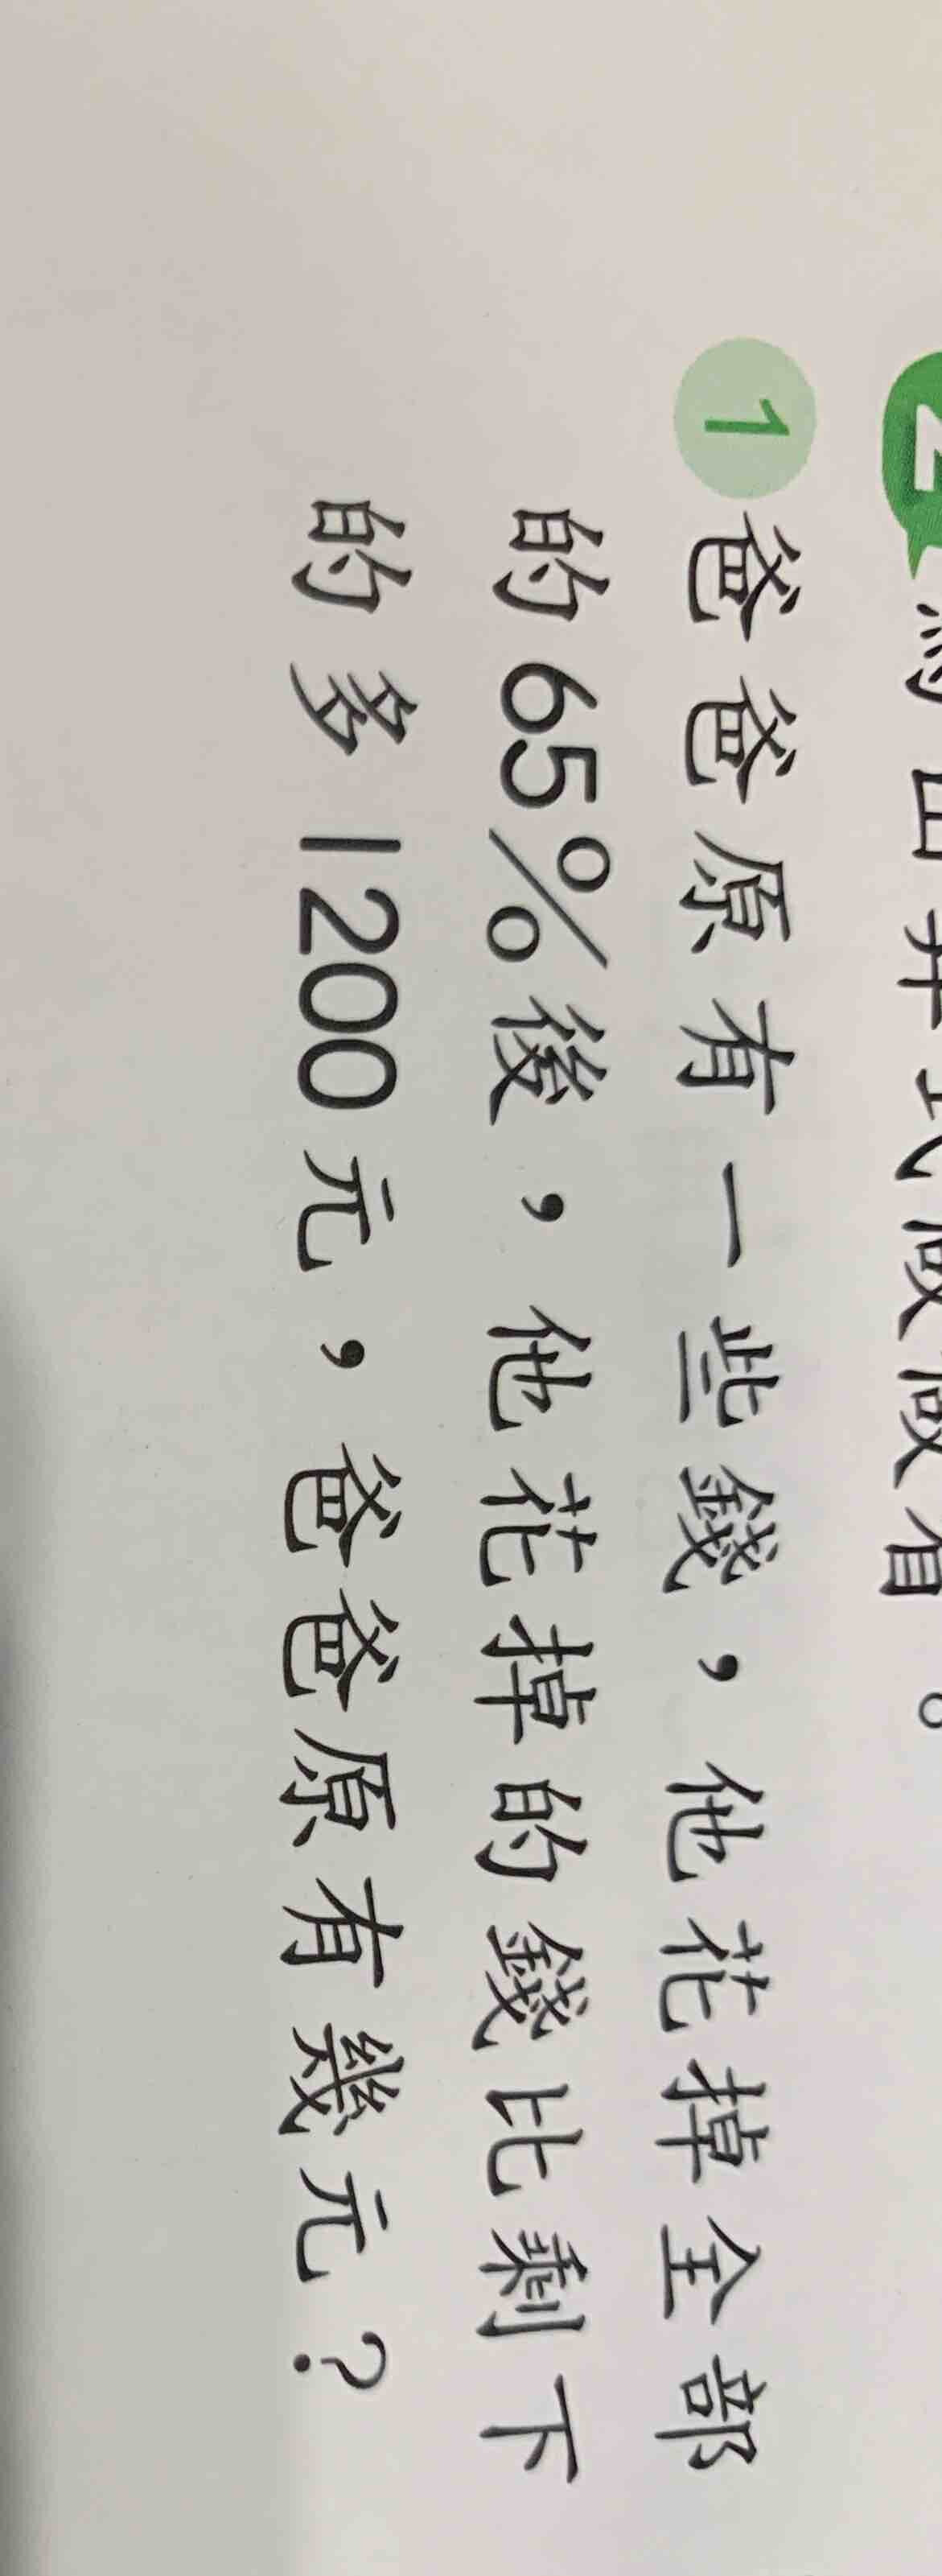 1 爸爸原有一些錢，他花掉全部
的65％後，他花掉的錢比剩下
的多1200元，爸爸原有幾元？